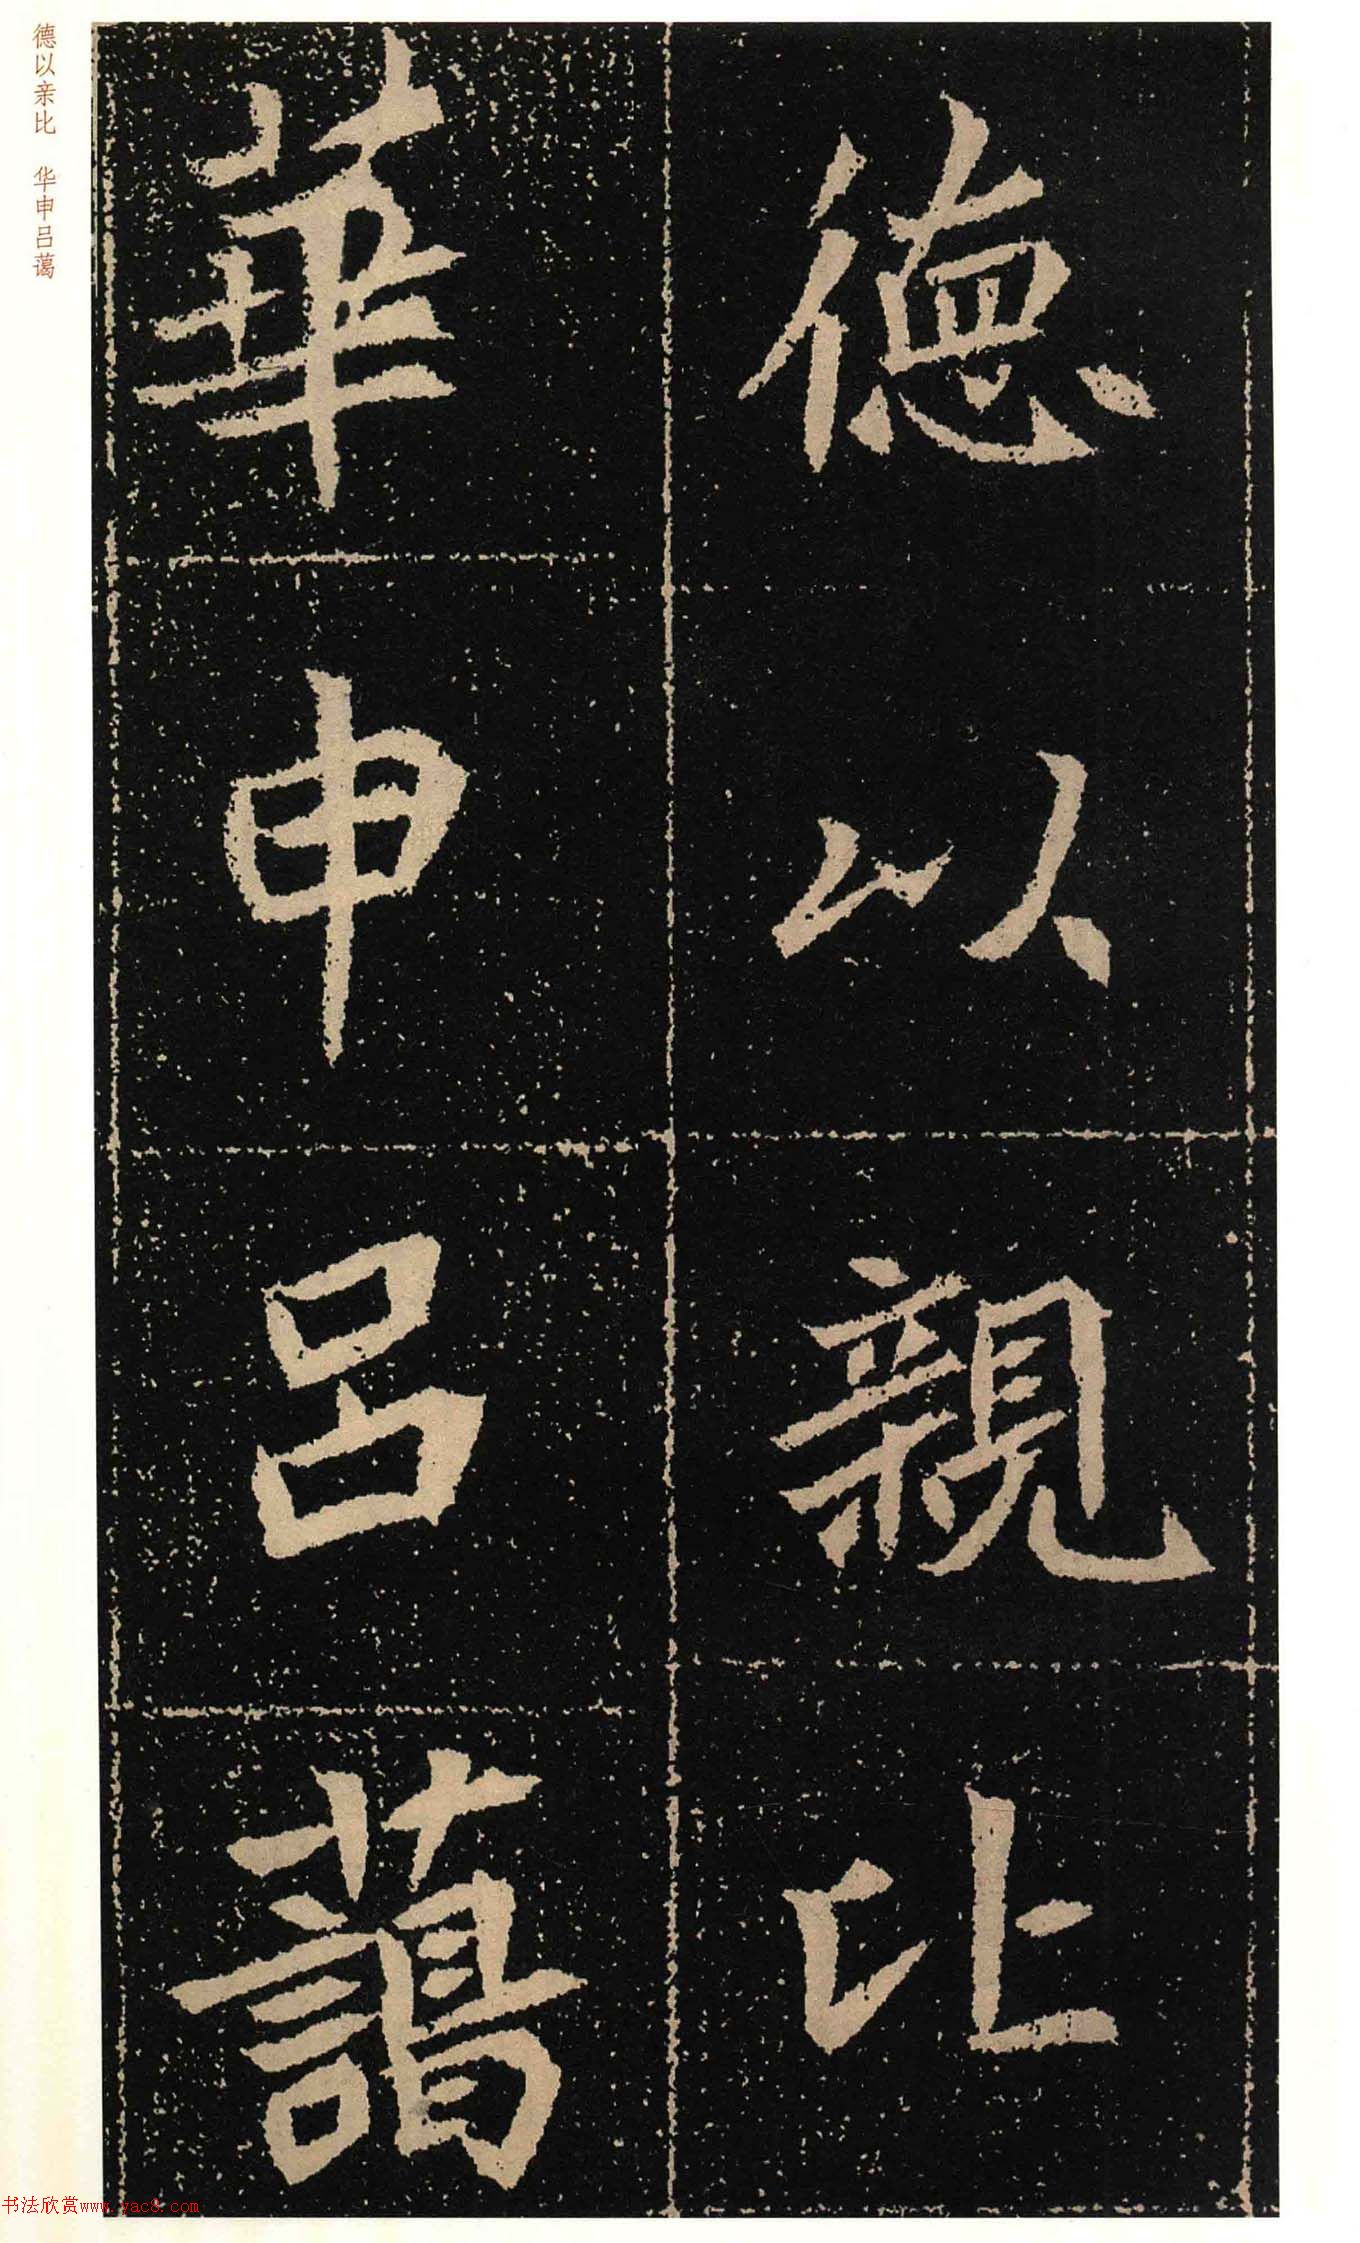 德以親比
華申呂藹
德以亲比 华申吕蔼
书法欣赏www.yac8.com